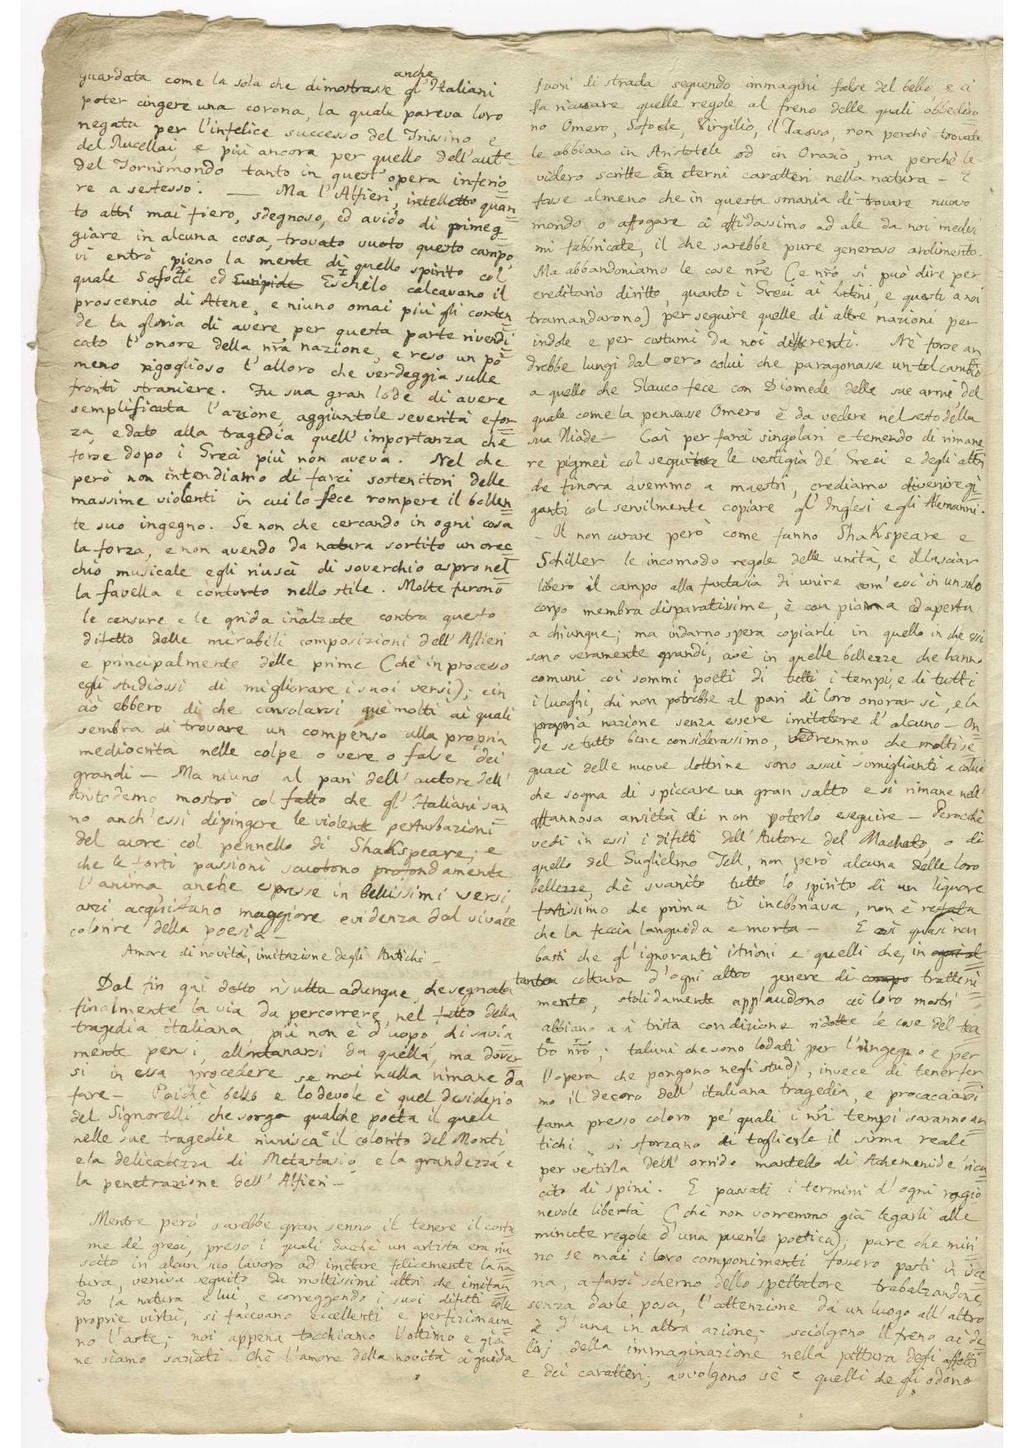 guardata come la sola che dimostrasse anche gl'Italiani
poter cingere una corona, la quale pareva loro
negata per l'infelice successo del Trissino e
del Rucellai e più ancora per quello dell'auto=
del Torrismondo tanto in quest'opera inferio
re a se stesso. — Ma l'Alfieri, intelletto quan
to altri mai fiero, sdegnoso, ed avido di primeg
giare in alcuna cosa, trovato vuoto questo campo,
vi entrò pieno la mente di quello spirito col
quale Sofocle ed Euripide Eschilo calcavano il
proscenio di Atene, e niuno omai più gli conten
de la gloria di avere per questa parte rivendi
cato l'onore della nr̃a nazione, e reso un po'
meno rigoglioso l'alloro che verdeggia sulle
fronti straniere. Fu sua gran lode di avere
semplificata l'azione, aggiuntole severità e for
za, e dato alla tragedia quell'importanza che
forse dopo i Greci più non aveva. Nel che
però non intendiamo di farci sostenitori delle
massime violenti in cui lo fece rompere il bollen
te suo ingegno. Se non che cercando in ogni cosa
la forza, e non avendo da natura sortito un orec
chio musicale egli riuscì di soverchio aspro nel
la favella e contorto nello stile. Molte furono
le censure e le grida inalzate contra questo
difetto delle mirabili composizioni dell'Alfieri
e principalmente delle prime (ché in processo
egli studiossi di migliorare i suoi versi); e in
ciò ebbero di che consolarsi que' molti ai quali
sembra di trovare un compenso alla propria
mediocrità nelle colpe o vere o false dei
grandi — Ma niuno al pari dell'autore dell'
Aristodemo mostrò col fatto che gl'Italiani san
no anch'essi dipingere le violente perturbazioni
del cuore col pennello di Shakspeare; e
che le forti passioni scuotono profondamente
l'anima anche espresse in bellissimi versi,
anzi acquistano maggiore evidenza dal vivace
colorire della poesia —
Amore di novità, imitazione degli Antichi —
Dal fin qui detto risulta adunque, che segnata
finalmente la via da percorrere nel fatto della
tragedia italiana, più non è d'uopo, di savia
mente pensi, allontanarsi da quella, ma dover
si in essa procedere se mai nulla rimane da
fare — Poiché bello e lodevole è quel desiderio
del Signorelli che sorga qualche poeta il quale
nelle sue tragedie riunisca il colorito del Monti
e la delicatezza di Metastasio, e la grandezza e
la penetrazione dell'Alfieri —
Mentre però sarebbe gran senno il tenere il costu
me de' greci, presso i quali dachè un artista era riu
scito in alcun suo lavoro ad imitare felicemente la na
tura, veniva seguito da moltissimi altri che imitan
do la natura e lui, e correggendo i suoi difetti colle
proprie virtù, si facevano eccellenti e perfezionava
no l'arte; noi appena tocchiamo l'ottimo e già
ne siamo saziati. Chè l'amore della novità ci guida
fuori di strada seguendo immagini false del bello, e ci
fa ricusare quelle regole al freno delle quali obbediro
no Omero, Sofocle, Virgilio, il Tasso, non perché trovate
le abbiano in Aristotele od in Orazio, ma perché le
videro scritte in eterni caratteri nella natura — E
fosse almeno che in questa smania di trovare nuovo
mondo o affogare ci affidassimo ad ale da noi medesi
mi fabbricate, il che sarebbe pure generoso ardimento.
Ma abbandoniamo le cose nr̃e (e nr̃o si può dire per
ereditario diritto, quanto i Greci ai Latini, e questi a noi
tramandarono) per seguire quelle di altre nazioni per
indole e per costumi da noi differenti. Nè forse an
drebbe lungi dal vero colui che paragonasse un tal cambio
a quello che Glauco fece con Diomede delle sue armi del
quale come la pensasse Omero è da vedere nel sesto della
sua Iliade — Così per farci singolari e temendo di rimane
re pigmei col seguitare le vestigia de' Greci e degli altri
che finora avemmo a maestri, crediamo divenire gi
ganti col servilmente copiare gl'Inglesi e gli Alemanni.
— Il non curare però come fanno Shakspeare e
Schiller le incomode regole delle unità, e il lasciar
libero il campo alla fantasia di unire com'essi in un solo
corpo membra disparatissime, è cosa piana ed aperta
a chiunque; ma indarno spera copiarli in quello in che essi
sono veramente grandi, cioè in quelle bellezze che hanno
comuni coi sommi poeti di tutti i tempi e di tutti
i luoghi, chi non potrebbe al pari di loro onorar sè, e la
propria nazione senza essere imitatore d'alcuno — On
de se tutto bene considerassimo, vedremmo che molti se
guaci delle nuove dottrine sono assai somiglianti a colui
che sogna di spiccare un gran salto e si rimane nell'
affannosa ansietà di non poterlo eseguire — Perocchè
vedi in essi i difetti dell'Autore del Macheto, o di
quello del Guglielmo Tell, non però alcuna delle loro
bellezze, ch'è svanito tutto lo spirito di un liquore
fortissimo che prima ti inebbriava, non è restata
che la feccia languida e morta — E così quasi non
basti che gl'ignoranti istrioni e quelli che, in
tanta coltura d'ogni altro genere di tratteni
mento, stolidamente applaudono ai loro mostri
abbiano a sì trista condizione ridotte le cose del tea
tro nr̃o; taluni che sono lodati per l'ingegno e per
l'opera che pongono negli studj, invece di tener fer
mo il decoro dell'italiana tragedia, e procacciarsi
fama presso coloro pe' quali i nr̃i tempi saranno an
tichi, si sforzano di togliele il sirma reale
per vestirla dell'orrido mantello di Achemenide ricu
cito di spini. E passati i termini d'ogni ragio
nevole libertà (chè non vorremmo già legarli alle
minute regole d'una puerile poetica); pare che miri
no se mai i loro componimenti fossero posti in isce
na, a farsi scherno dello spettatore trabalzandone,
senza darle posa, l'attenzione da un luogo all'altro
e d'una in altra azione; sciolgono il freno ai de
lirj della immaginazione nella pittura degli affetti
e dei caratteri; avvolgono sè e quelli che gli odono